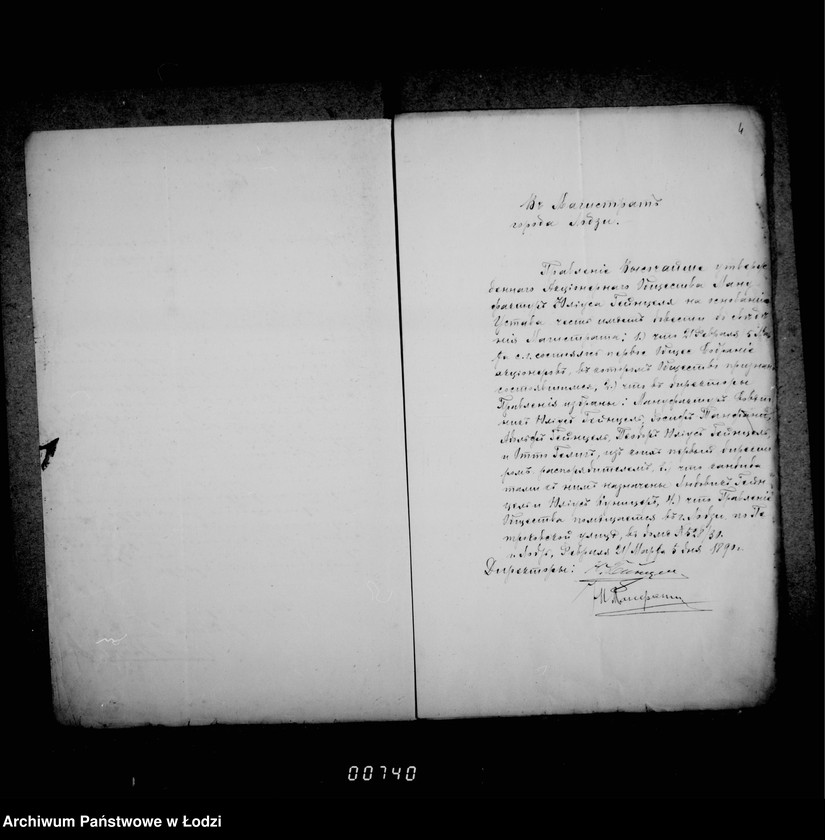 4
Въ Магистратъ
города Лодзи.
Правленіе Высочайше утверж
деннаго Акціонернаго Общества Ману
фактуръ Юліуса Гейнцеля на основаніи
Устава честь имѣетъ довести до свѣдѣ
нія Магистрата: 1) что 21 Февраля 5 Мар
та с. г. состоялось первое Общее Собраніе
акціонеровъ, въ которомъ Общество признано
состоявшимся, 2) что въ директоры
Правленія избраны: Мануфактуръ Совѣт
никъ Юліусъ Гейнцель, Іосифъ
Адольфъ Гейнцель, Теодоръ Юліусъ Гейнцель,
и Отто Гелигъ, изъ коихъ первый директо
ромъ распорядителемъ, 3) что кандида
тами къ нимъ назначены Людовикъ Гейн
цель и Юліусъ Куницеръ, 4) что Правленіе
Общества помѣщается въ г. Лодзи по Пе
троковской улицѣ, въ домѣ № 528/51.
г. Лодзь, Февраля 21/Марта 5 дня 1890 г.
Директоры:
00740
Archiwum Państwowe w Łodzi